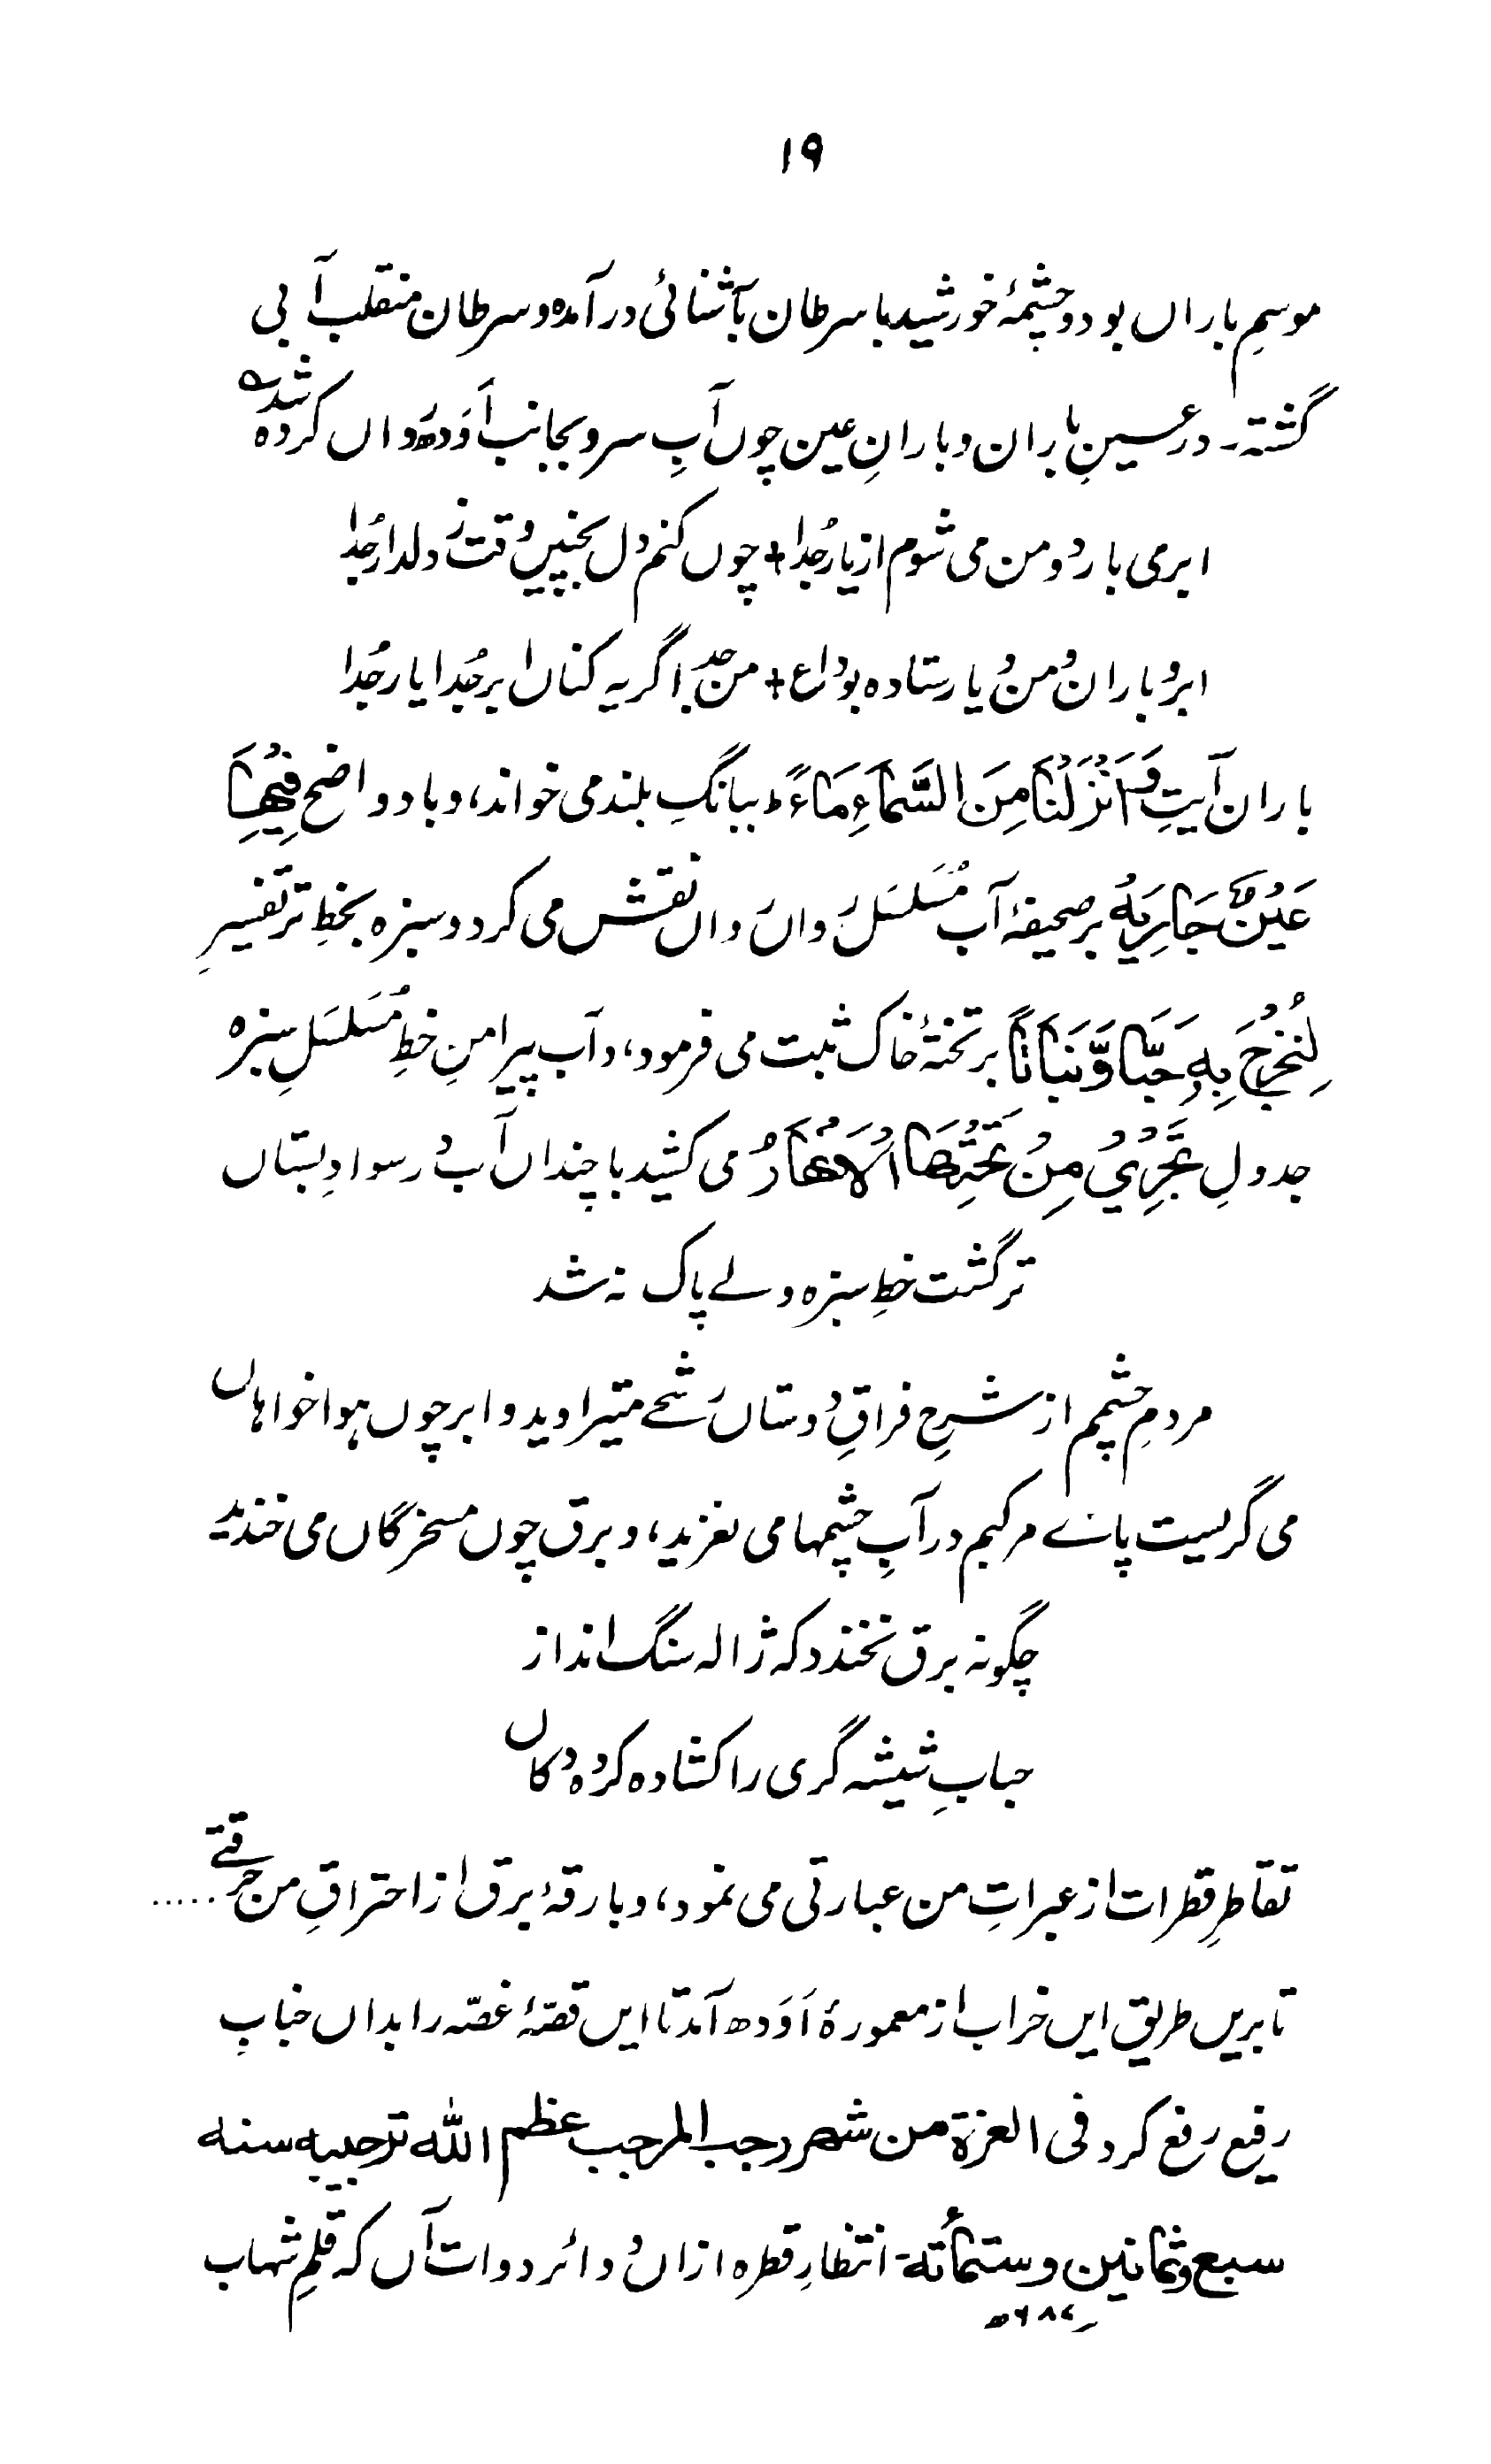 ۱۹
موسمِ باراں بود و چشمۂ خورشید با سرطان بآشنائی درآمدہ و سرطان منقلب آبی
گشتہ۔ در عسینِ باران و بارانِ عین چوں آبِ سرو بجانب اَوَدھ رواں کردہ شد ؎
ابر می بارد و من می شوم از یار جُدا + چوں کنم دل بچنیں وقت ز دلدار جُدا
ابر و باران و من و یار ستادہ بوداع + من جُدا گریہ کناں ابر جُدا یار جُدا
باران آیتِ وَاَنْزَلْنَا مِنَ السَّمَآءِ مَآءً ببانگِ بلند می خواند، و باد و اضح فِیْهَا
عَیْنٌ جَارِیَهٌ بر صحیفۂ آب مُسَلسَل رَواں رَواں نقش می کرد و سبزہ بخطِ تر تفسیرِ
لِنُخْرِجَ بِهٖ حَبًّا وَّنَبَاتًا بر تختۂ خاک ثبت می فرمود، و آب پیرامنِ خطِ مُسَلسَلِ سبزہ
جدولِ تَجْرِیْ مِنْ تَحْتِهَا الْاَنْهَارُ می کشید با چنداں آب در سوادِ بستاں
تر گشت خطِ سبزہ ولے پاک نہ شد
مردمِ چشمم از شرحِ فراقِ دوستاں رَشحے میتراوید و ابر چوں ہوا خواہاں
می گریست پاے مرکبم در آبِ چشمہا می لغزید، و برق چوں مسخرگاں می خندید
چگونہ برق نخندد کہ ژالہ سنگ انداز
حبابِ شیشہ گری را کشادہ کردہ دکاں
تقاطرِ قطرات از عبراتِ من عبارتی می نمود، و بارقۂ برق از احتراقِ من حرقتے .....
تا بریں طریق ایں خراب از معمورۂ اَوَدھ آمد تا ایں قصّۂ غصّہ را بداں جنابِ
رفیع رفع کرد فی الغزة من شهر رجب المرجب عظم الله ترجیبه سنه
سبع و ثمانین و ستمائة۔ انتظارِ قطرہ ازاں دائر دوات آں کہ قلمِ شہاب
۶۸۷ھ